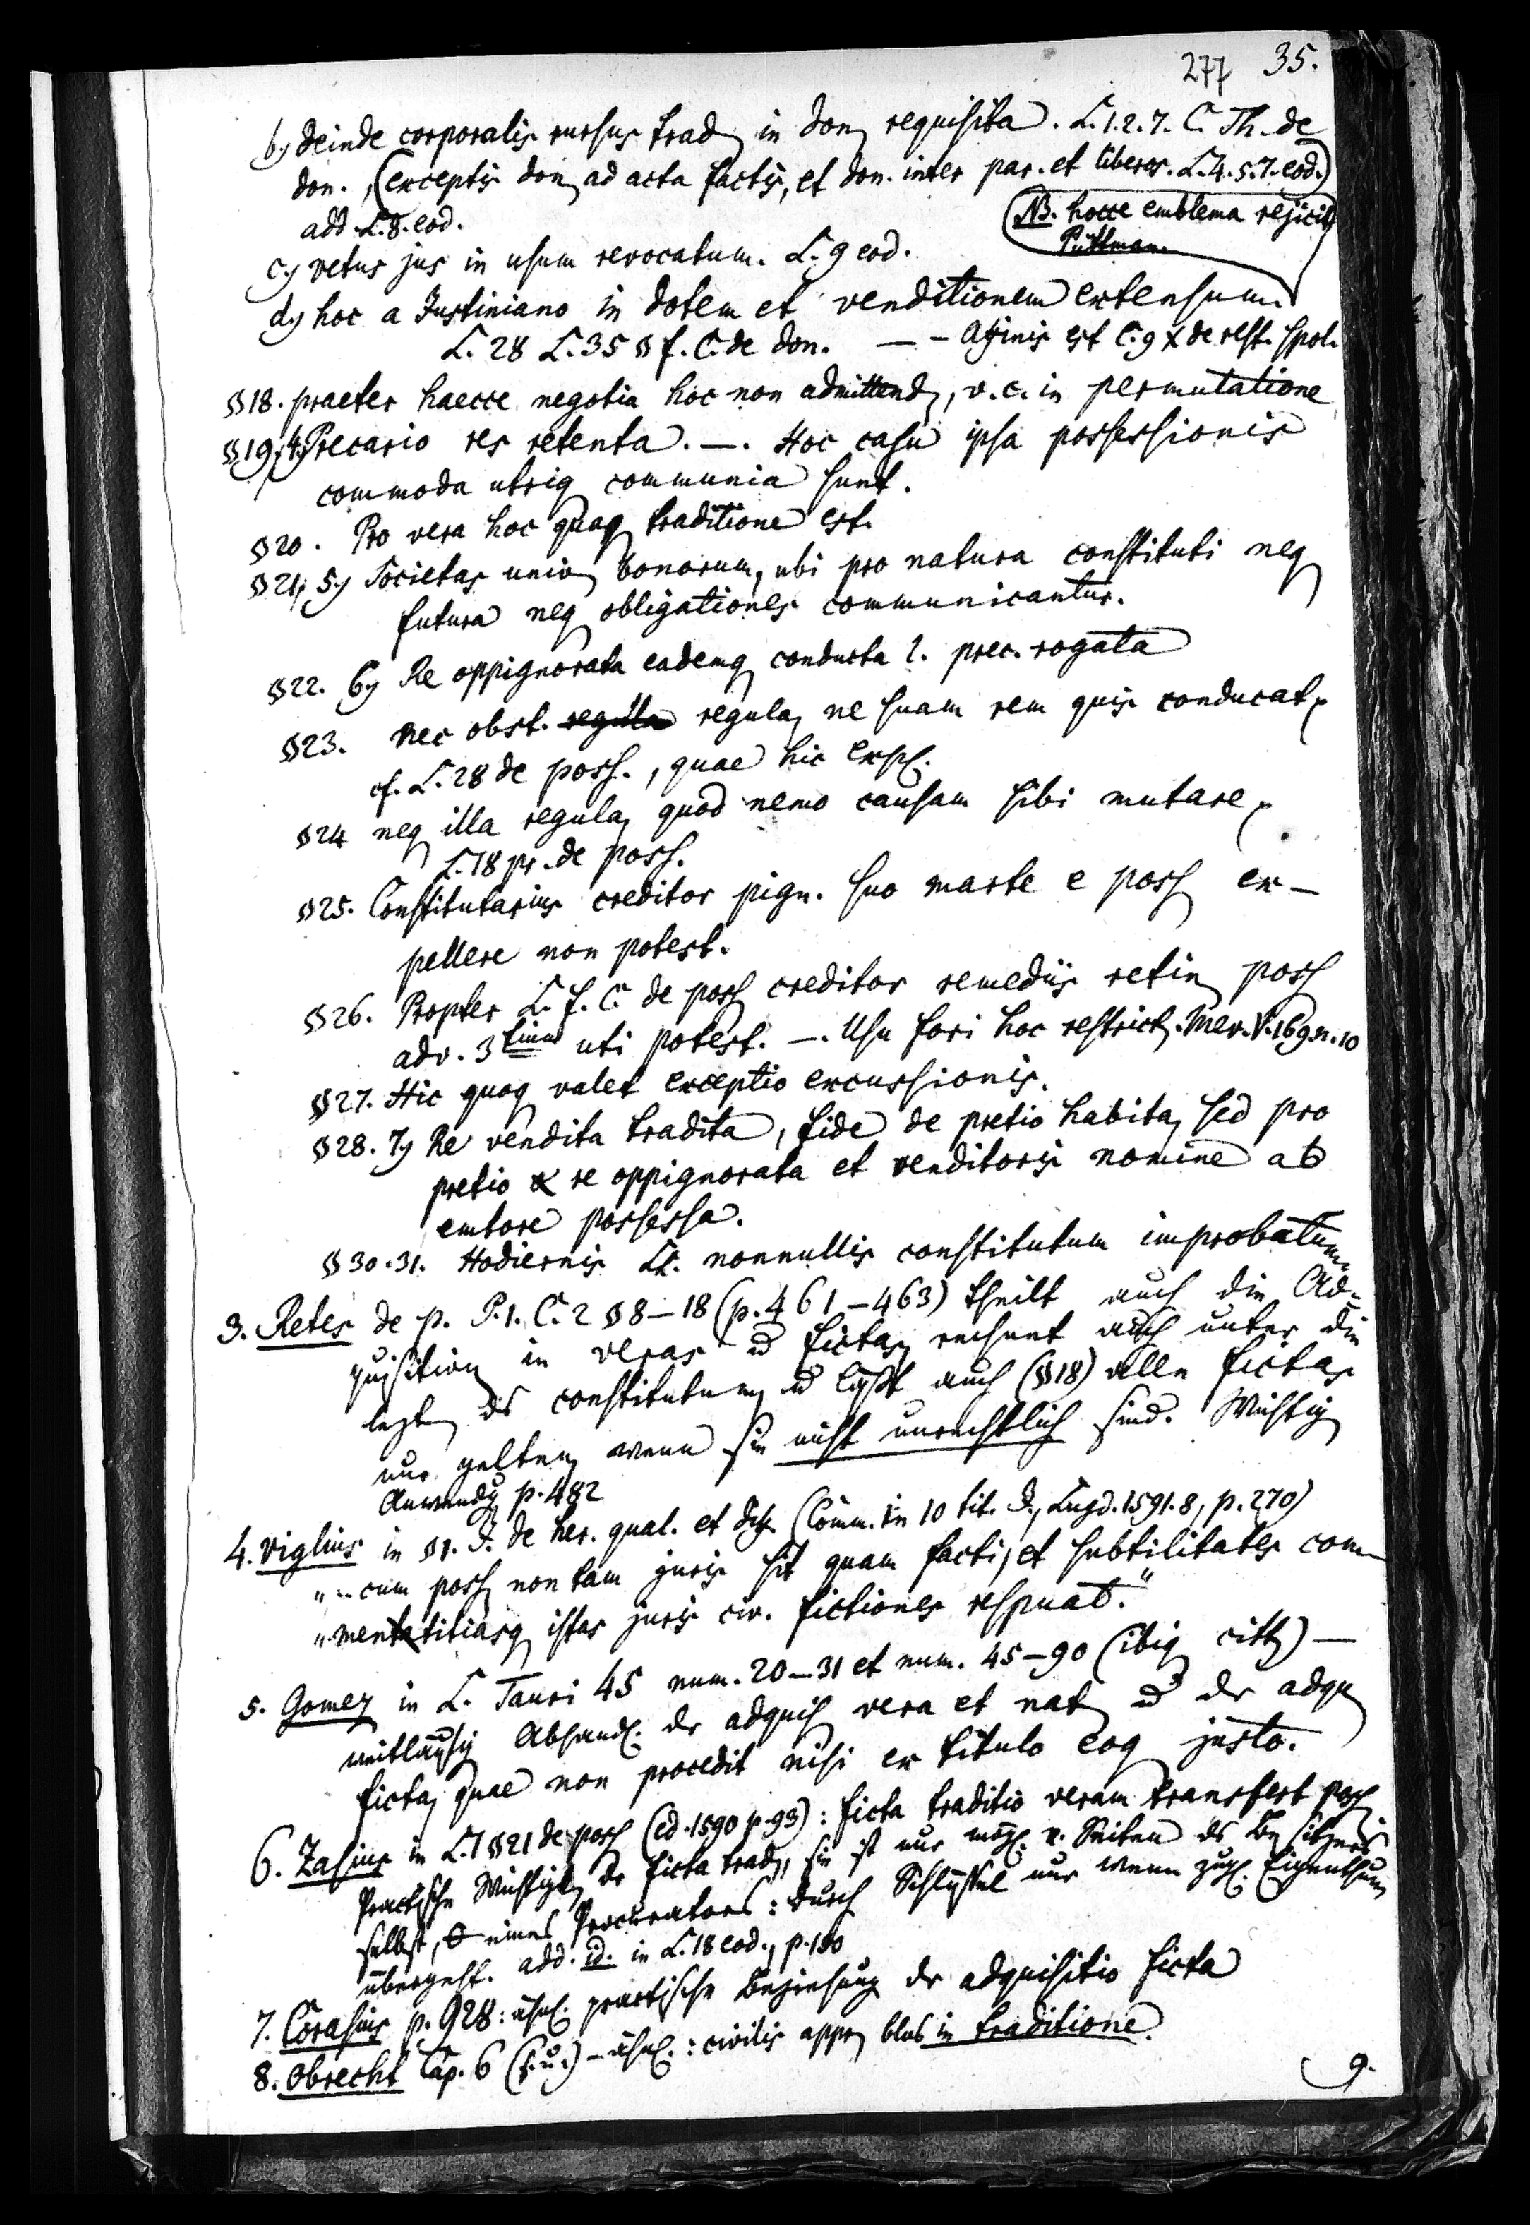 277 35.
b) deinde corporalis rursus trad in don requisita. L. 1. 2. 7. C. Th. de
don., (exceptis don ad acta factis, et don. inter par. et liberos. L. 4. 5. 7. eod.)
add. L. 8. eod.
NB. hocce emblema rejicit
Püttman.
c) vetus jus in usum revocatum. L. 9 eod.
d) hoc a Justiniano in dotem et venditionem extensum.
L. 28 L. 35 § f. C. de don. — - Affinis est C. 9 X de rest. spol.
§18. praeter haecce negotia hoc non admittend, v. c. in permutatione
§19. 4) Precario res retenta. —. Hoc casu ipsa possessionis
commoda utriq communia sunt.
§20. Pro vera hoc quoq traditione est.
§21. 5) Societas univ bonorum, ubi pro natura constituti neq
futura neq obligationes communicantur.
§22. 6) Re oppignorata eademq conducta l. prec. rogata
§23. nec obst. regula regula, ne suam rem quis conducat,
cf. L. 28 de poss., quae hic expl.
§24 neq illa regula, quod nemo causam sibi mutare,
L. 18 pr. de poss.
§25. Constitutarius creditor pign. suo marte e poss ex-
pellere non potest.
§26. Propter L. f. C. de poss creditor remediis retin poss
adv. 3tium uti potest. —. Usu fori hoc restrict. Mev. V. 169. n. 10
§27. Hic quoq valet exceptio excussionis.
§28. 7) Re vendita tradita, fide de pretio habita, sed pro
pretio re oppignorata et venditoris nomine ab
emtore possessa.
§30. 31. Hodiernis LL. nonnullis constitutum improbatum.
3. Retes de p. P. 1. C. 2 §8—18 (p. 461—463) theilt auch die Ad-
quisition in veras u fictas, rechnet auch unter die
letzt ds constitutum, u läßt auch (§18) alle fictas
nur gelten, wenn sie nicht unrechtlich sind. Wichtig
Anwendg p. 482
4. Viglius in §1. J. de her. qual. et diff. (Comm. in 10 tit. J., Lugd. 1591. 8, p. 270)
"-- cum poss non tam juris sit quam facti, et subtilitates com-
"mentatitiasq istas juris civ. fictiones respuat."
5. Gomez in L. Tauri 45 num. 20—31 et num. 45—90 (ibiq citt) —
weitläufig Abhandl. dr adquis vera et nat u dr adqu
ficta, quae non procedit nisi ex titulo eoq justo.
6. Zasius in L. 1 §21 de poss (ed. 1590 p. 93): ficta traditio veram transfert poss.
Practische Wichtigk dr ficta trad, sie ist nur mögl. v. Seiten ds Besitzers
selbst, o eines Procurators: durch Schlüssel nur wenn zugl. Eigenthum
übergeht. add. id. in L. 18 eod., p. 100
7. Corasius p. 928: ähnl. practische Beziehung dr adquisitio ficta
8. Obrecht Cap. 6 (s. u.) — ähnl.: civilis appr blos in traditione.
9.